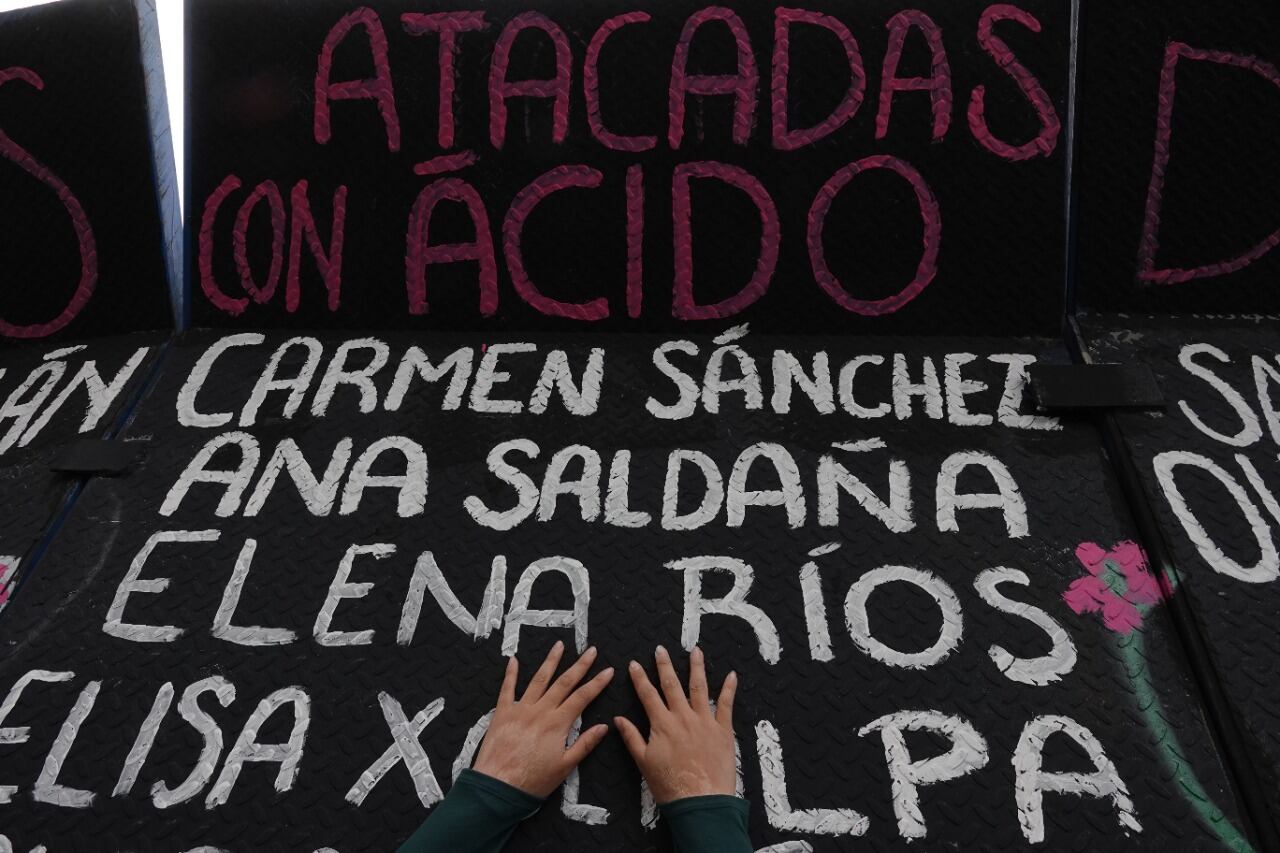 ATACADAS
CON ÁCIDO
CARMEN SÁNCHEZ
ANA SALDAÑA
ELENA RÍOS
ELISA